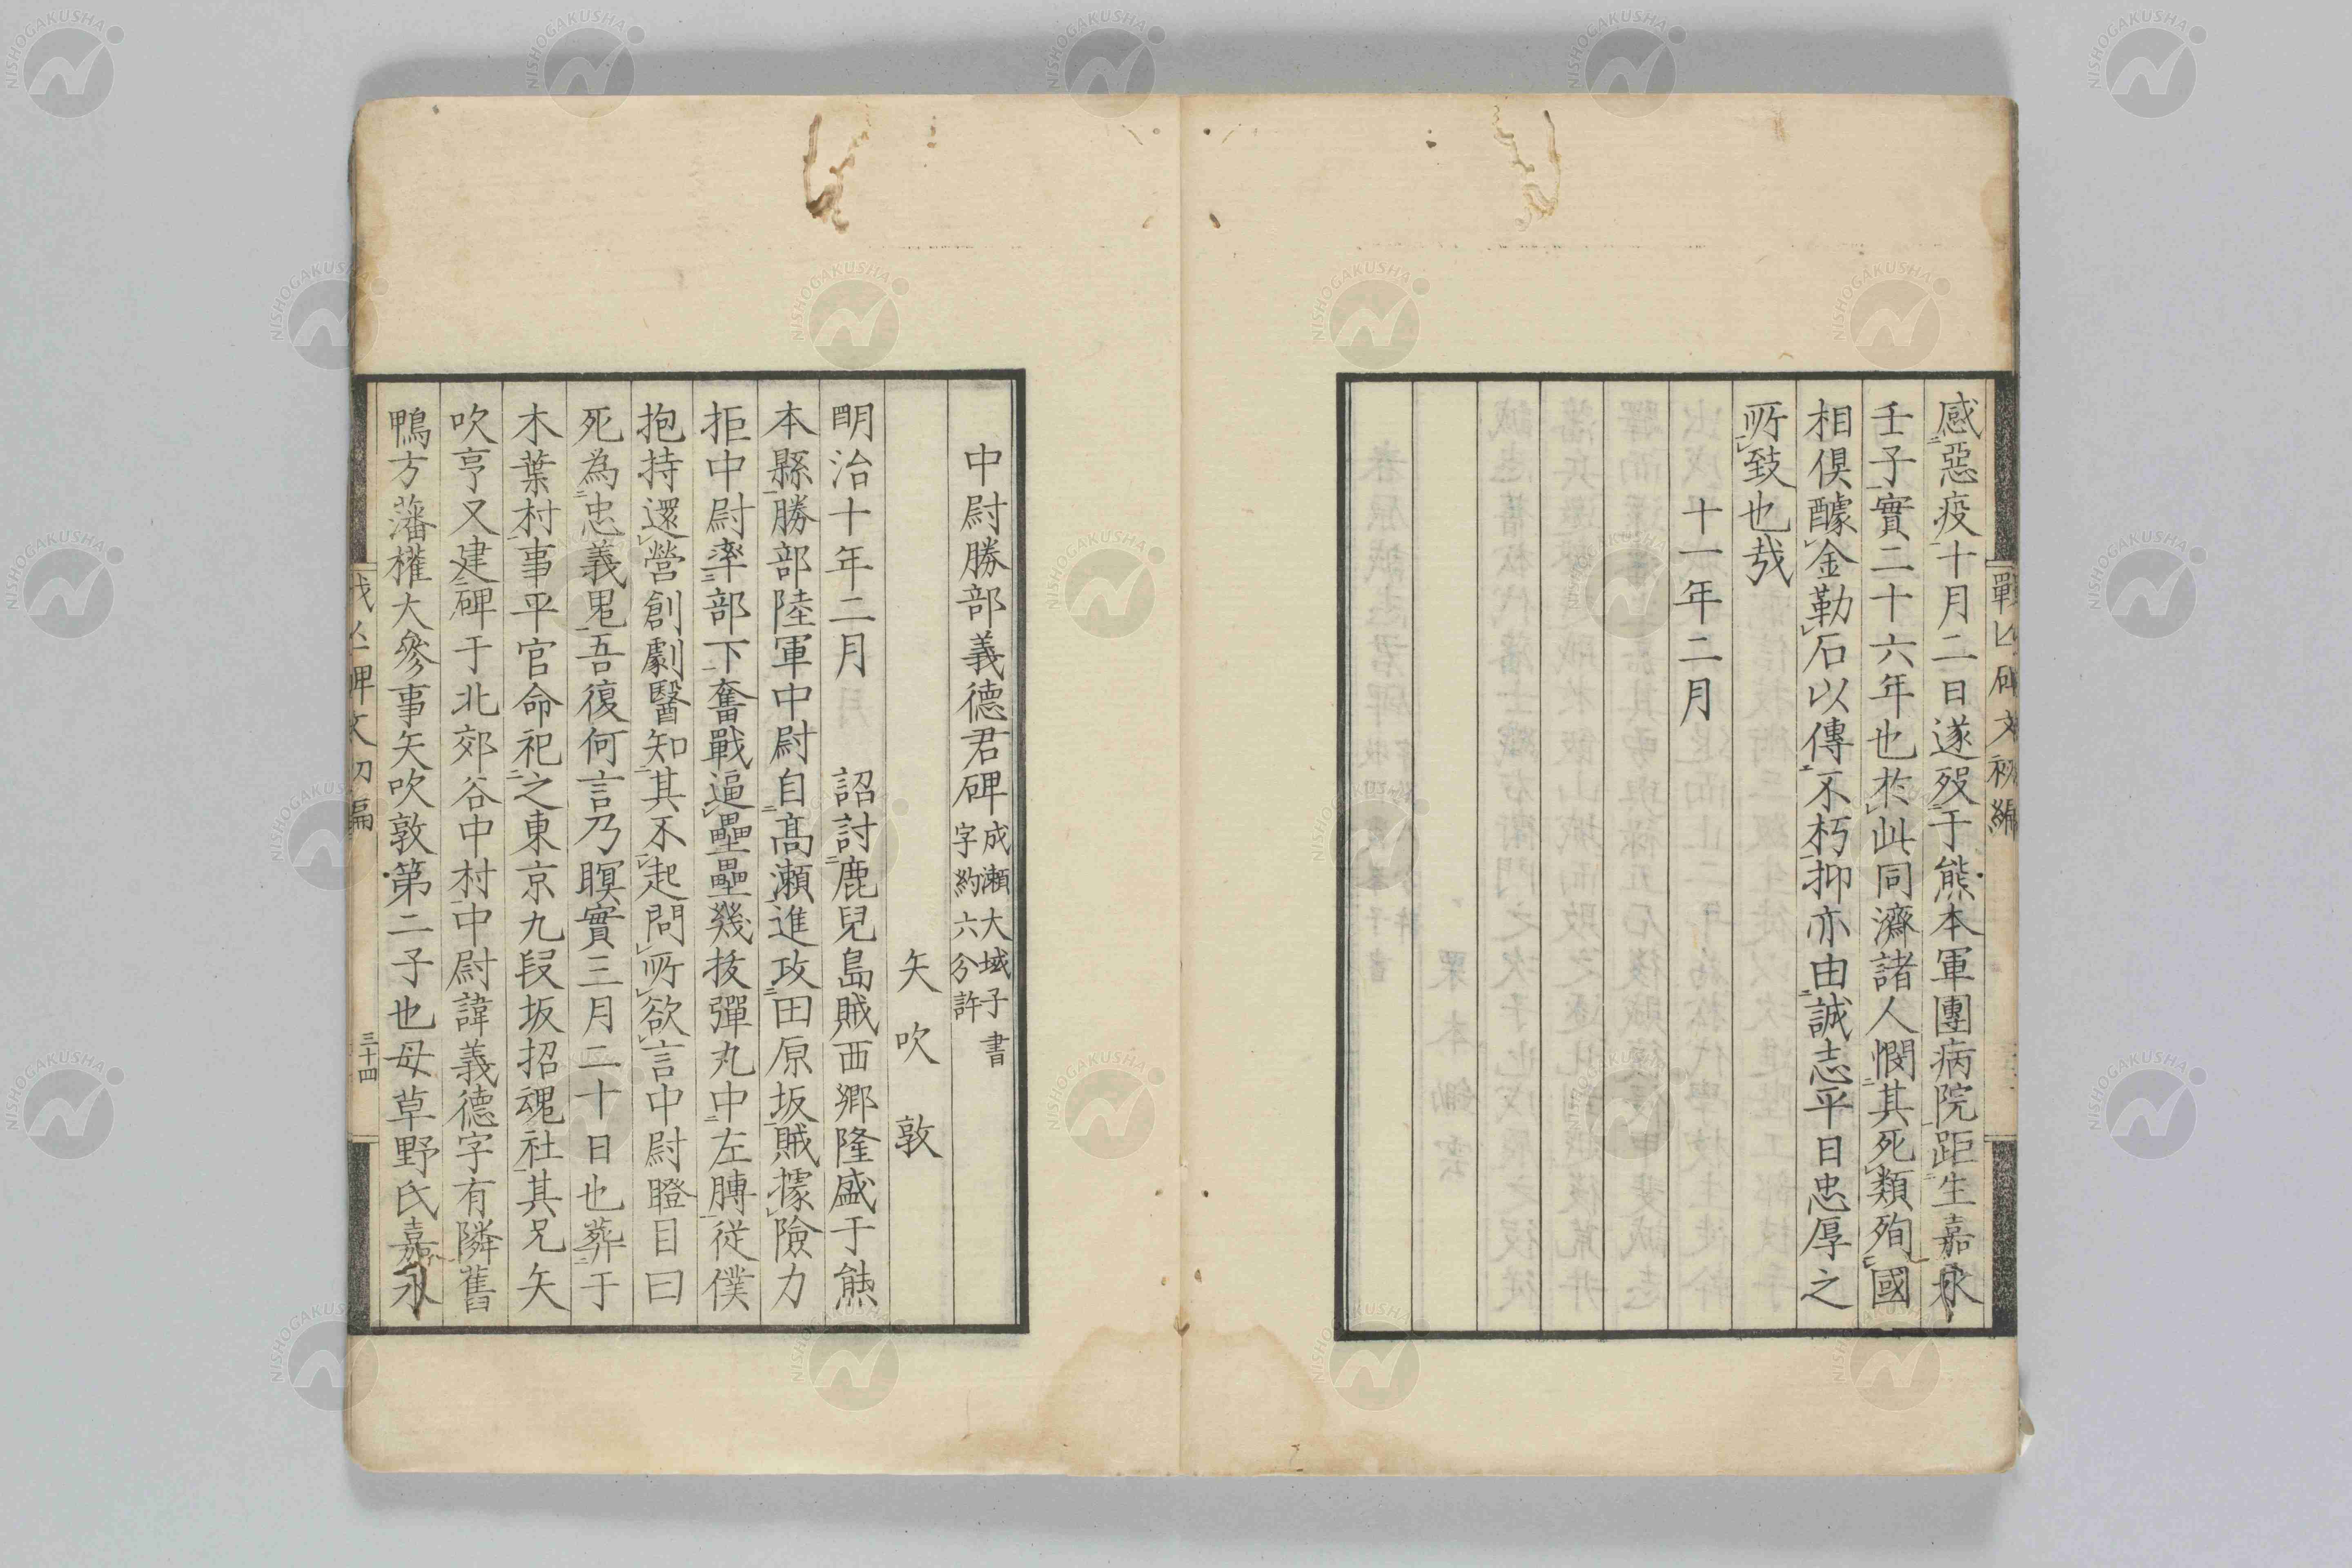 感惡疫十月二日遂歿于熊本軍團病院距生嘉永
壬子實二十六年也於此同濟諸人憫其死類殉國
相倶醵金勒石以傳不朽抑亦由誠志平日忠厚之
所致也哉
十一年二月
戰亾碑文初編
中尉勝部義德君碑 成瀬大域子書
字約六分許
矢吹敦
明治十年二月 詔討鹿兒島賊西郷隆盛于熊
本縣勝部陸軍中尉自髙瀬進攻田原坂賊據險力
拒中尉率部下奮戰逼壘壘幾抜彈丸中左膊従僕
抱持還營創劇醫知其不起問所欲言中尉瞪目曰
死為忠義鬼吾復何言乃瞑實三月二十日也葬于
木葉村事平官命祀之東京九段坂招魂社其兄矢
吹亨又建碑于北郊谷中村中尉諱義德字有隣舊
鴨方藩權大參事矢吹敦第二子也母草野氏嘉永
戰亾碑文初編
三十四
NISHOGAKUSHA